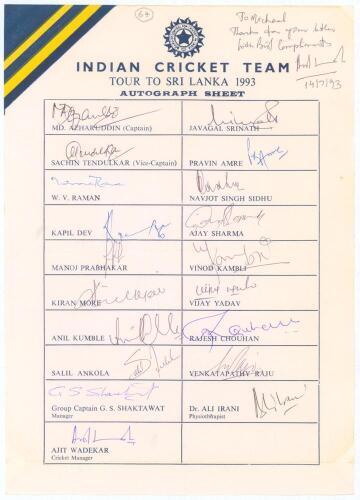 64
To Micheal
Thanks for your letter
With Best Compliments
14/7/93
INDIAN CRICKET TEAM
TOUR TO SRI LANKA 1993
AUTOGRAPH SHEET
MD. AZHARUDDIN (Captain)
JAVAGAL SRINATH
SACHIN TENDULKAR (Vice-Captain)
PRAVIN AMRE
W. V. RAMAN
NAVJOT SINGH SIDHU
KAPIL DEV
AJAY SHARMA
MANOJ PRABHAKAR
VINOD KAMBLI
KIRAN MORE
VIJAY YADAV
ANIL KUMBLE
RAJESH CHOUHAN
SALIL ANKOLA
VENKATAPATHY RAJU
G S Shaktawat
Group Captain G. S. SHAKTAWAT
Manager
Dr. ALI IRANI
Physiotherapist
AJIT WADEKAR
Cricket Manager